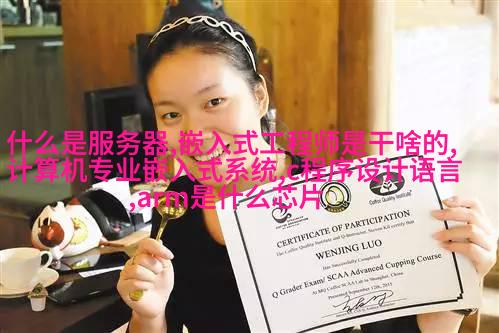 什么是服务器,嵌入式工程师是干啥的,
计算机专业嵌入式系统,c程序设计语言
,arm是什么芯片
Coffee Quality Institute
CERTIFICATE OF PARTICIPATION
The Coffee Quality Institute and Q-Instructor, certify that
WENJING LUO
Has Successfully Completed
Q Grader Exam/ SCAA Advanced Cupping Course
Presented September 12th, 2015